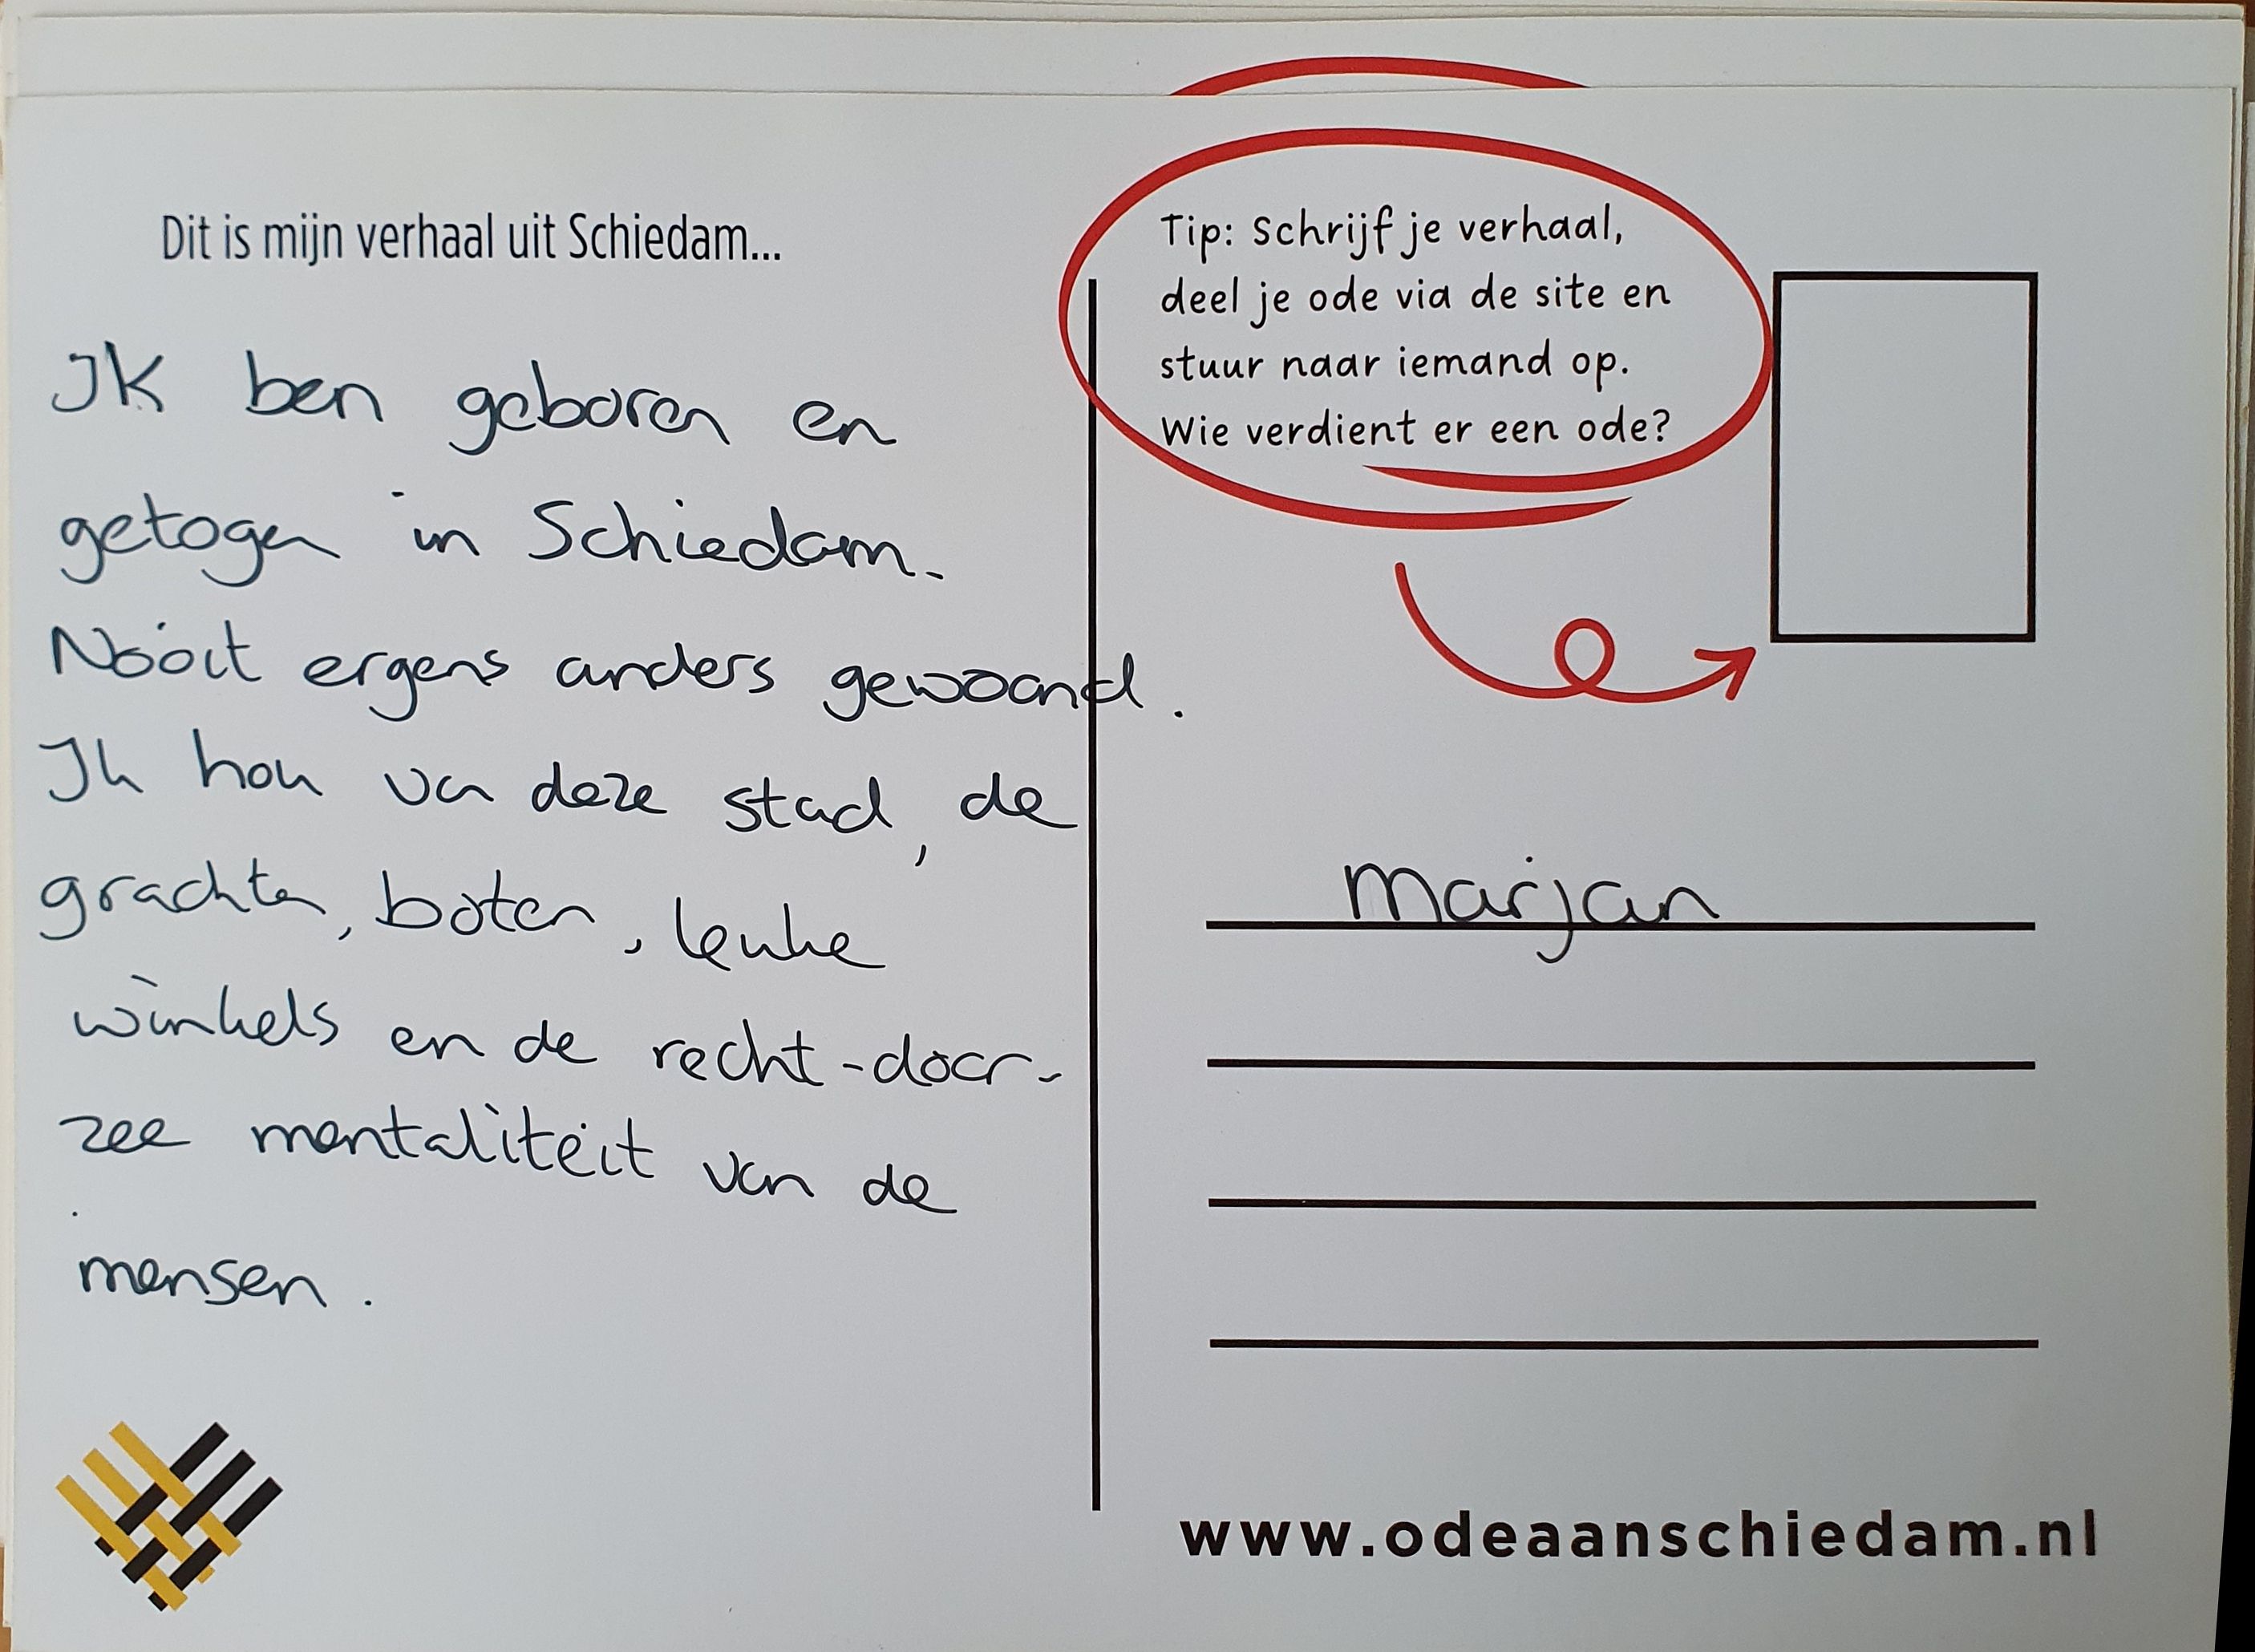 Dit is mijn verhaal uit Schiedam...
Ik ben geboren en
getogen in Schiedam.
Nooit ergens anders gewoond.
Ik hou van deze stad, de
grachten, boten, leuke
winkels en de recht-door-
zee mentaliteit van de
mensen.
Tip: Schrijf je verhaal,
deel je ode via de site en
stuur naar iemand op.
Wie verdient er een ode?
Marjan
www.odeaanschiedam.nl